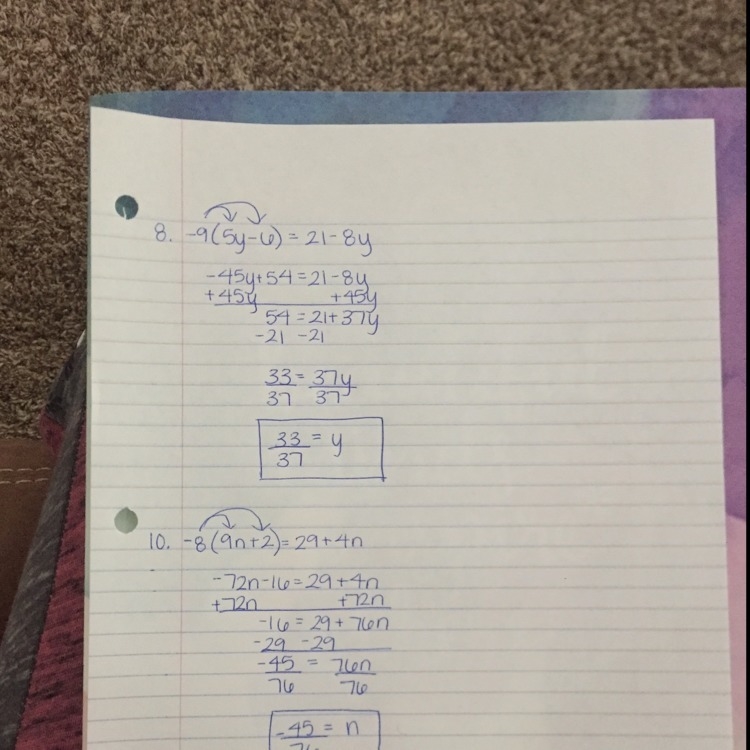 8. -9(5y-6) = 21-8y
-45y+54 = 21-8y
+45y +45y
54 = 21+37y
-21 -21
33 = 37y
37 37
33 = y
37
10. -8(9n+2) = 29+4n
-72n-16 = 29+4n
+72n +72n
-16 = 29+76n
-29 -29
-45 = 76n
76 76
-45 = n